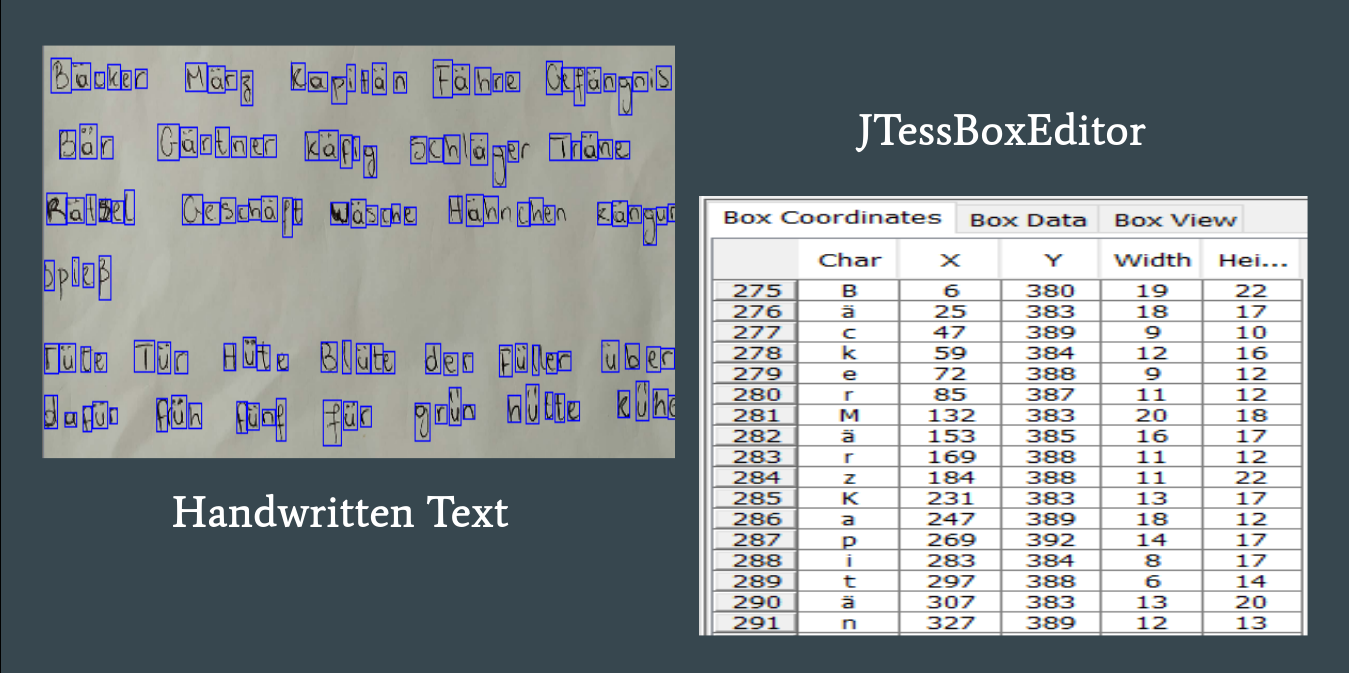 Bäcker März Kapitän Fähre Gefängnis
Bär Gärtner Käfig Schläger Träne
Rätsel Geschäft Wäsche Hähnchen Kängur
Spieß
Tüte Tür Hüte Blüte der Füller über
dafür früh fünf für grün hütte
Handwritten Text
JTessBoxEditor
Box Coordinates Box Data Box View
Char X Y Width Hei...
275 B 6 380 19 22
276 ä 25 383 18 17
277 c 47 389 9 10
278 k 59 384 12 16
279 e 72 388 9 12
280 r 85 387 11 12
281 M 132 383 20 18
282 ä 153 385 16 17
283 r 169 388 11 12
284 z 184 388 11 22
285 K 231 383 13 17
286 a 247 389 18 12
287 p 269 392 14 17
288 i 283 384 8 17
289 t 297 388 6 14
290 ä 307 383 13 20
291 n 327 389 12 13